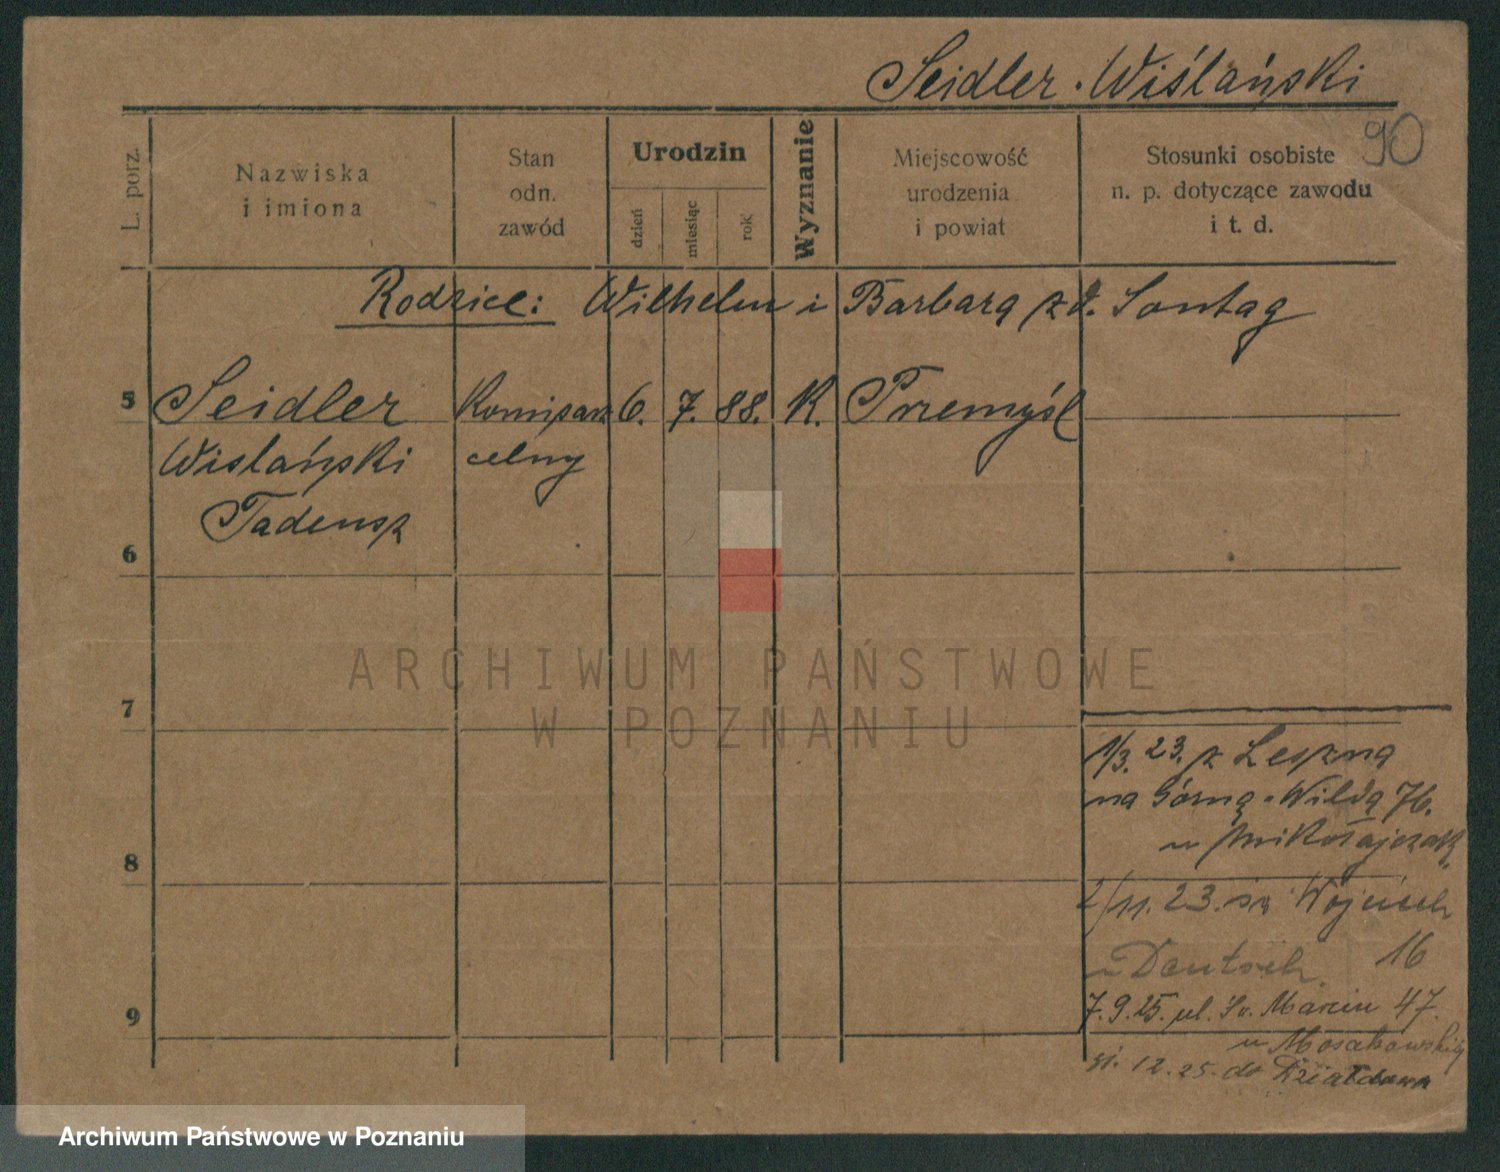 Seidler-Wiślański
90
L. porz.
Nazwiska
i imiona
Stan
odn.
zawód
Urodzin
dzień
miesiąc
rok
Wyznanie
Miejscowość
urodzenia
i powiat
Stosunki osobiste
n. p. dotyczące zawodu
i t. d.
Rodzice: Wilhelm i Barbara z d. Sontag
5 Seidler Komisarz 6. 7. 88. K. Przemyśl
Wislański celny
Tadeusz
6
7
1/3. 23. z Leszna
na Górną-Wildą 76.
u Mikołajczak
8
2/11. 23. św Wojciech
16
u Deutsch
7. 9. 25. ul. Św. Marcin 47.
9
u Mosakowskiej
12. 25. do Działdowa
ARCHIWUM PAŃSTWOWE
W POZNANIU
Archiwum Państwowe w Poznaniu